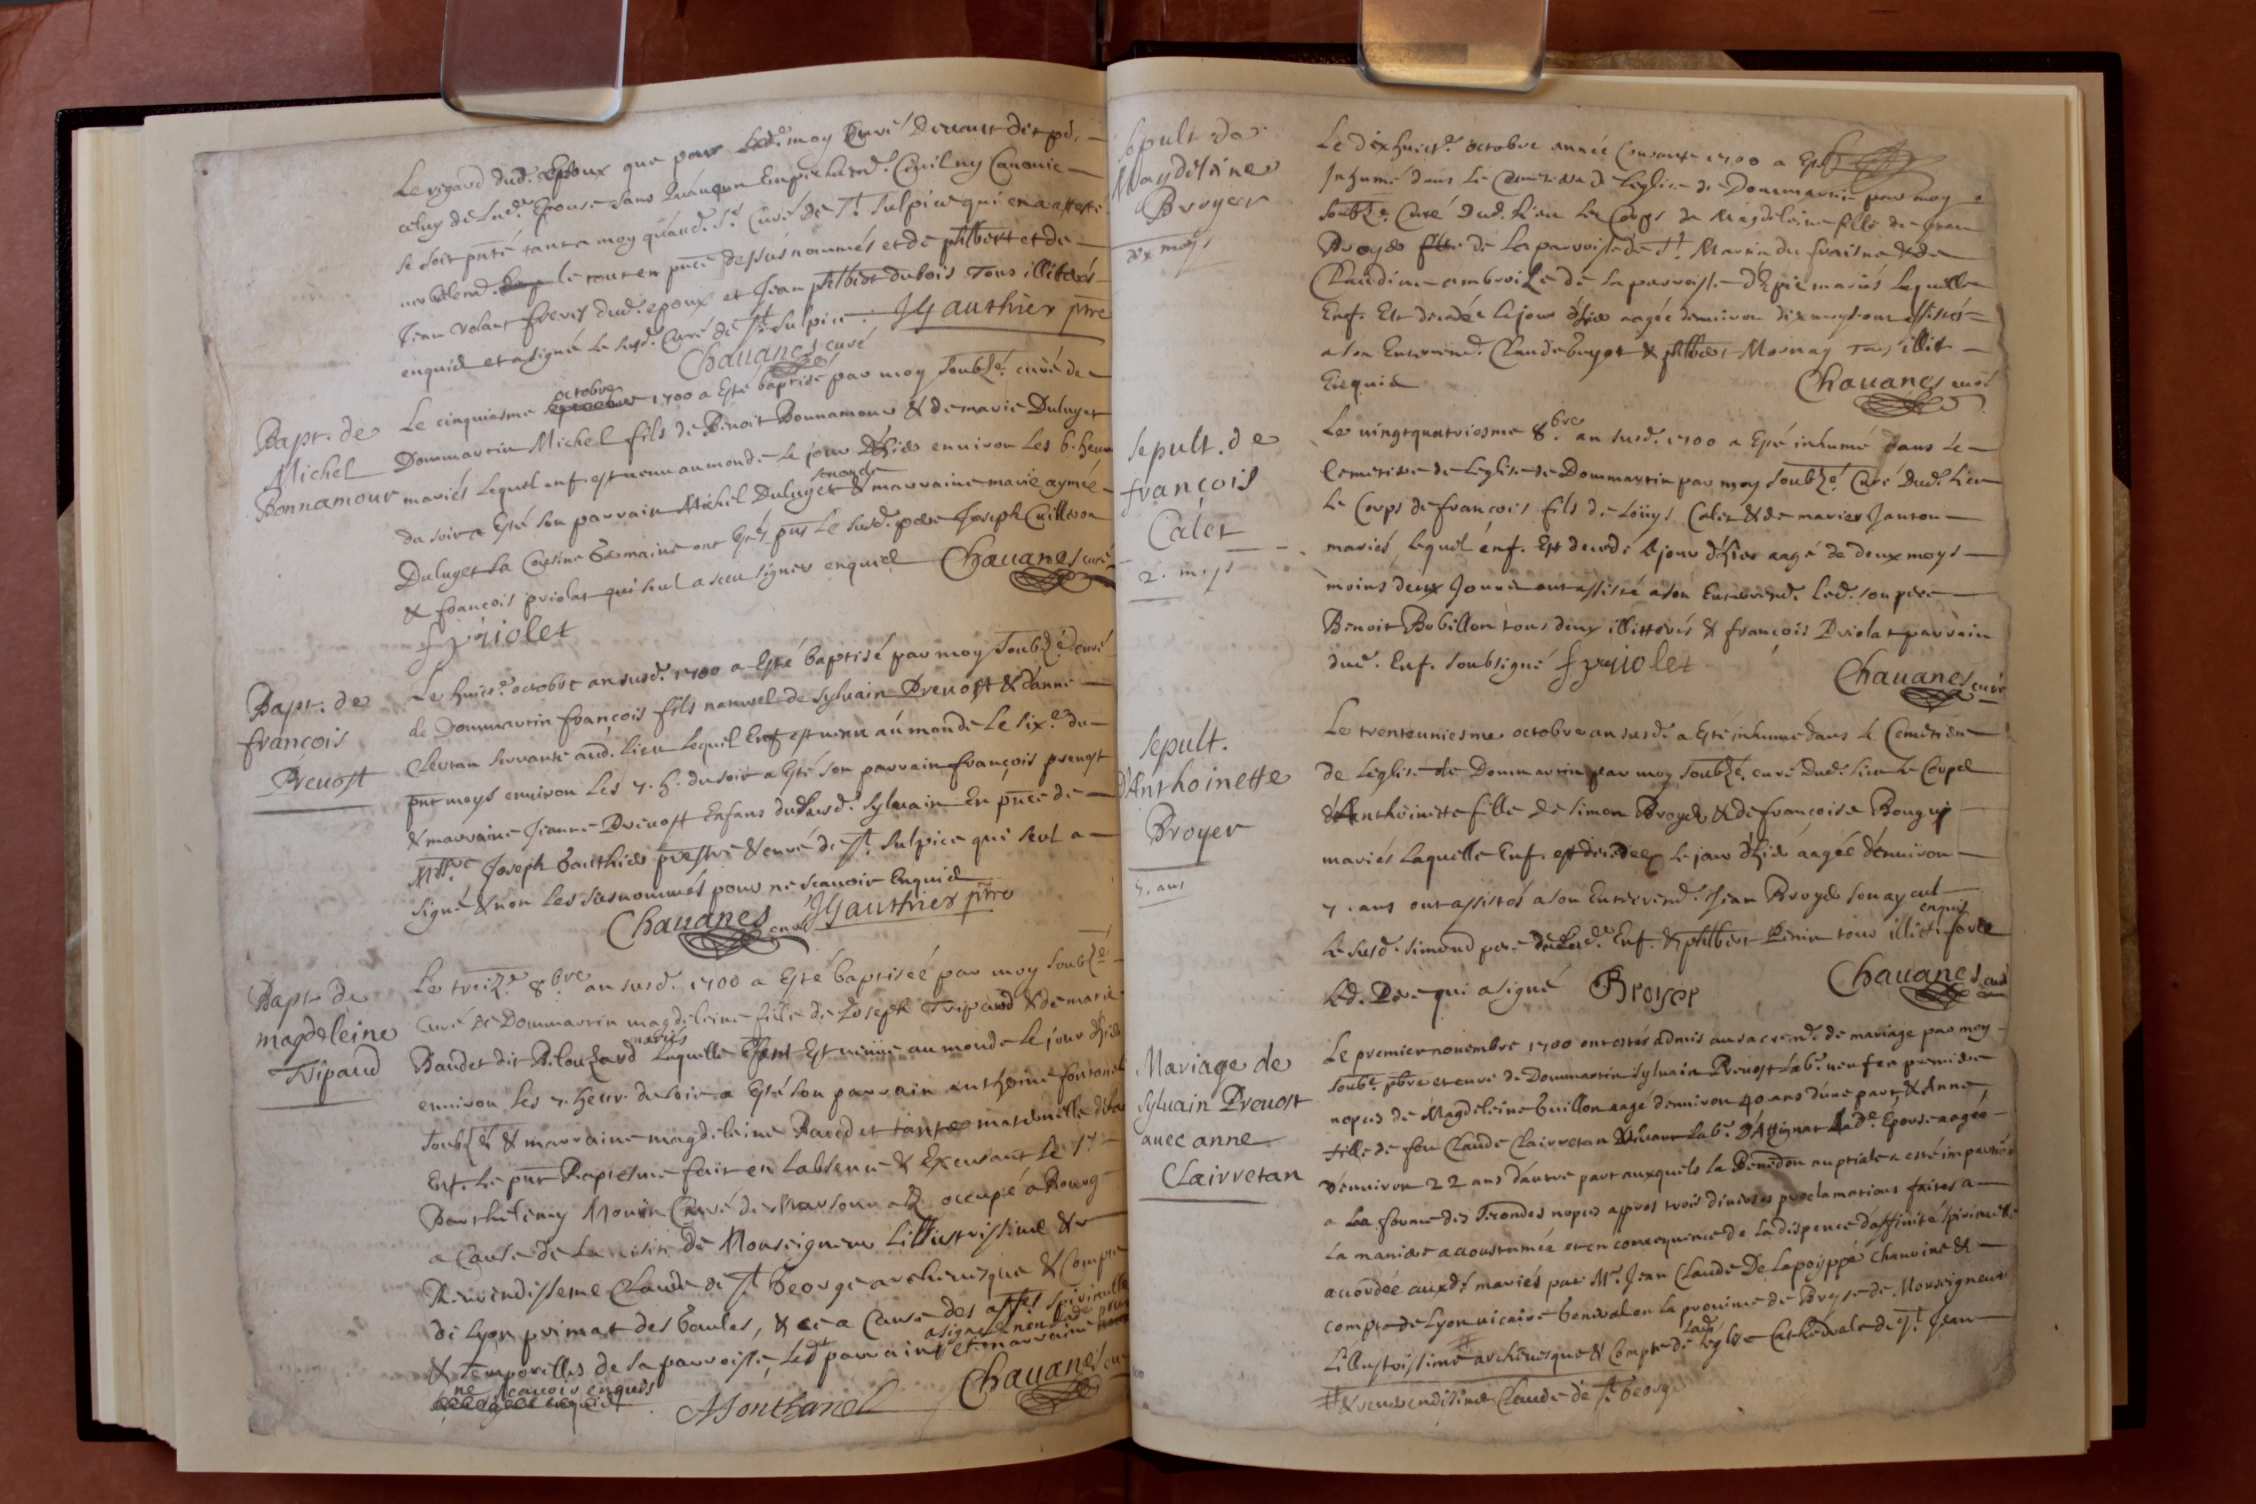 Le regard dud. Epoux que par led. moy Curé
celuy de lad.e Epouse sans qu'aucun Empechem.t Civil ny Canonic
se soit pnté tant a moy qu'aud. Sr Curé de St Sulpice qui en a attesté
le tout en pnce dessus nommés et de philbert et de
Jean Volant freres dud. epoux et Jean philbert dubois Tous illiterés
enquis et a signé le susd. Curé de St Sulpice. JGauthier ptre
Chauanes curé
Bapt. de
Michel
Bonnamour
Le cinquiesme octobre 1700 a Esté baptisé par moy soubzé. curé de
Dommartin Michel fils de Benoit Bonnamour & de marie Duluget
mariés lequel enf. est venu au monde le jour d'hier enuiron les 6. heur
du soir a Esté son parrain Michel Duluget & marraine marie aymée
Duluget sa Cousine Germaine ont Estés pnts le susd. pere Joseph Cuilleron
& francois priolet qui seul a sceu signer enquis Chauanes curé
f priolet
Bapt. de
françois
Preuost
Le huict.e octobre an susd. 1700 a Esté baptisé par moy soubzé curé
de Dommartin françois fils naturel de syluain Preuost & d'anne
Clertan seruante aud. lieu lequel Enf est venu au monde le six.e du
pnt moys enuiron les 7. h. du soir a Esté son parrain françois preuost
& marraine Jeanne Preuost Enfans dud. susd. syluain En pnce de
Mss.re Joseph Gauthier prestre & curé de St Sulpice qui seul a
signé & non les susnommés pour ne scauoir Enquis
Chauanes curé JGauthier ptre
Bapt. de
magdeleine
Tripaud
Le treiz.e 8.bre an susd. 1700 a Esté baptiseé par moy soubzé
curé de Dommartin magdeleine fille de Joseph Tripaud & de marie
Baudet dit Blouzard mariés laquelle Efent Est venüe au monde le jour d'hier
enuiron les 7. heur. du soir a Esté son parrain anthoine fontanel
soubzé & marraine magdeleine Baudet tante maternelle dud.
Enf. Le pnt Baptesme fait en l'absence & Excusant le Sr
Barthelemy Morin Curé de Marsonnaz occupé a Bourg
a Cause de La visite de Monseigneur L'illustrissime &
Reuerendisseme Claude de St George archeuesque & Compte
de Lyon primat des Gaules, & ce a Cause des affes spirituelles
& Temporelles de sa parroisse, led. parrain a signé & non la de marraine
ne scauoir enquis
Chauanes cu
Sepult. de
Magdeleine
Broyer
dix moys
Le dix huict.e octobre année Courante 1700 a Esté
Inhumé dans le Cemetiere de l'eglise de Dommartin par moy
soubzé. Curé dud. Lieu le Corps de Magdeleine fille de Jean
Broyer de la parroisse de St Martin du fraisne & de
Claudine ambroise de la parroisse d'Epie mariés laquelle
Enf. Est decedée le jour d'hier aagée d'enuiron dix moys ont assistés
a son Enterrem.t Claude buyet & philbert Mornay Tous illit
Enquis
Chauanes curé
Sepult. de
françois
Calet
2. moys
Le vingtquatriesme 8.bre an susd. 1700 a Esté inhumé dans Le
Cemetiere de l'eglise de Dommartin par moy soubzé Curé dud. Lieu
le Corps de francois fils de Loüys Calet & de marie Janton
mariés, lequel enf. Est decedé le jour d'hier aagé de deux moys
moins deux Jours ont assisté a son Enterrem.t led. son pere
Benoit Bobillon tous deux illitterés & françois Priolet parrain
dud. Enf. soubsigné f priolet
Chauanes curé
Sepult.
d'Anthoinette
Broyer
7. ans
Le trenteuniesme octobre an susd. a Esté inhumé dans le Cemetiere
de l'eglise de Dommartin par moy soubzé. curé dud. lieu le Corps
d'Anthoinette fille de simon Broyer & de francoise Bouguy
mariés laquelle Enf. est decedée le jour d'hier aagée d'enuiron
7. ans ont assistés a son Enterrem.t Jean Broyer son ayeul
le susd. simond pere de lad.e Enf. & philbert Penin tous illit. enquis fors
Led. Pere qui a signé Broyer
Chauanes curé
Mariage de
Syluain Preuost
auec anne
Clairretan
Le premier nouembre 1700 ont estés admis au sacrem.t de mariage par moy
soubz.é pbre et curé de Dommartin Syluain Preuost Lab.r veuf en premiere
nopces de Magdeleine Guillon aagé d'enuiron 40 ans d'une part, & Anne
fille de feu Claude Clairretan viuant Lab.r d'Attignat lad.e Epouse aagée
d'enuiron 22 ans d'autre part auxquels la Benedon nuptiale a esté impartie
a la forme des secondes nopces appres trois diuerses proclamations faites a
la maniere accoustumée et en consequence de la dispence d'affinité spirituelle
accordée auxd. mariés par Mr. Jean Claude De Lapoyppe chanoine &
compte de Lyon vicaire General en la prouince de Bresse de Monseigneur
L'illustrissime # archeuesque & Compte de lad. Eglise Cathedrale de St Jean
# & reuerendissime Claude de St George